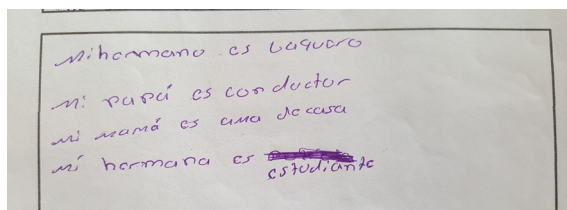 Mi hermano es vaquero
Mi papá es conductor
mi mamá es ama de casa
mi hermana es
estudiante